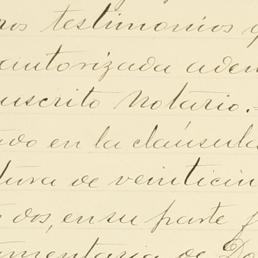 ros testimonios q
autorizada adem
uscrito Notario.-
ado en la cláusula
tura de veinticin
dos, en su parte f
amentaria de Do